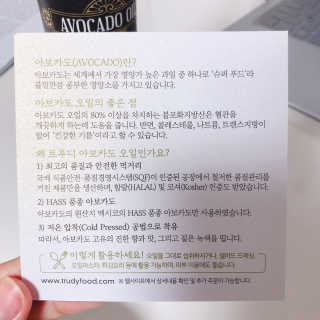 AVOCADO O
아보카도(AVOCADO)란?
아보카도는 세계에서 가장 영양가 높은 과일 중 하나로 '슈퍼 푸드'라
불릴만큼 풍부한 영양소를 가지고 있습니다.
아보카도 오일의 좋은 점
아보카도 오일의 80% 이상을 차지하는 불포화지방산은 혈관을
깨끗하게 하는데 도움을 줍니다. 반면, 콜레스테롤, 나트륨, 트랜스지방이
없어 '건강한 기름'이라고 할 수 있습니다.
왜 트루디 아보카도 오일인가요?
1) 최고의 품질과 안전한 먹거리
국제 식품안전·품질경영시스템(SQF)이 인증된 공장에서 철저한 품질관리를
거친 제품만을 생산하며, 할랄(HALAL) 및 코셔(Kosher) 인증도 받았습니다.
2) HASS 품종 아보카도
아보카도의 원산지 멕시코의 HASS 품종 아보카도만 사용하였습니다.
3) 저온 압착(Cold Pressed) 공법으로 착유
따라서, 아보카도 고유의 진한 향과 맛, 그리고 짙은 녹색을 띱니다.
이렇게 활용하세요! 오일을 그대로 섭취하시거나, 샐러드 드레싱,
오일파스타, 튀김요리 등에 활용 가능하며, 피부 미용에도 좋습니다.
www.trudyfood.com ※ 웹사이트에서 상세내용 확인 및 추가 주문이 가능합니다.